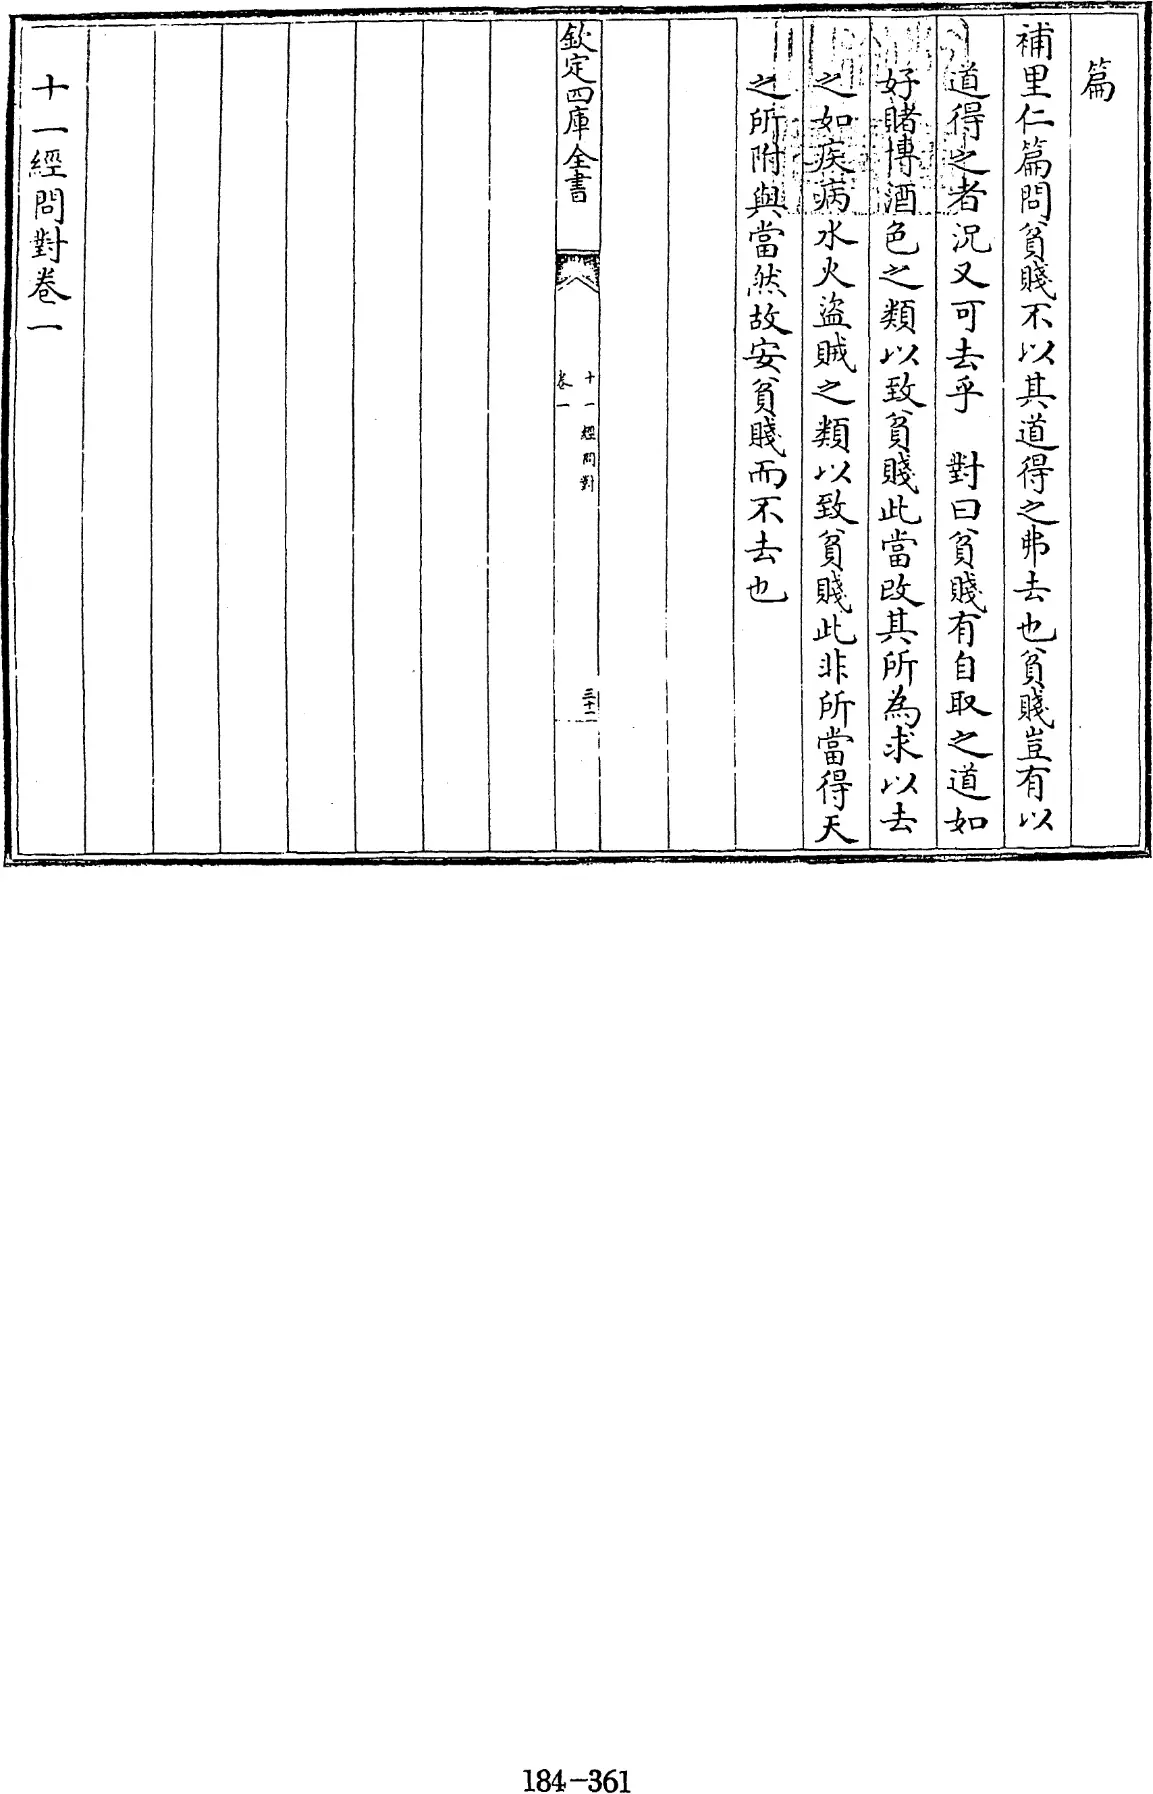 篇
補里仁篇問貧賤不以其道得之弗去也貧賤豈有以
道得之者況又可去乎　對曰貧賤有自取之道如
好賭博酒色之類以致貧賤此當改其所為求以去
之如疾病水火盜賊之類以致貧賤此非所當得天
之所附與當然故安貧賤而不去也
欽定四庫全書
十一經問對
卷一
三十二
十一經問對卷一
184-361